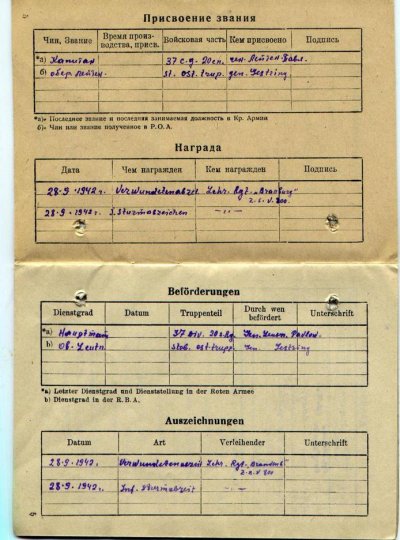 Присвоение звания
Чин, Звание Время производства, присв. Войсковая часть Кем присвоено Подпись
*а) Капитан 37 с.д. 20 сп. ген. Лейтен. Павл.
б) обер. Лейтен. St. Ost. trup. gen. Kestring
*а)= Последнее звание и последняя занимаемая должность в Кр. Армии
б)= Чин или звание полученное в Р.О.А.
Награда
Дата Чем награжден Кем награжден Подпись
28-9-1942 г. Verwundetenabzei. Lehr. Rgt. „Brandbrg"
z. b. V. 800.
28-9-1942 г. Sturmabzeichen -"-
Beförderungen
Dienstgrad Datum Truppenteil Durch wen befördert Unterschrift
*a) Hauptmann 37 Div. Pawlow.
b) Ob. Leutn. Stab. Ost. trupp. Gen. Kestring
*a) Letzter Dienstgrad und Dienststellung in der Roten Armee
b) Dienstgrad in der R. B. A.
Auszeichnungen
Datum Art Verleihender Unterschrift
28-9-1942 г. Verwundetenabzeit Lehr. Rgt. „Brandenb"
z. b. V. 800
28-9-1942 г. Inf. Sturmabzeit -"-
5